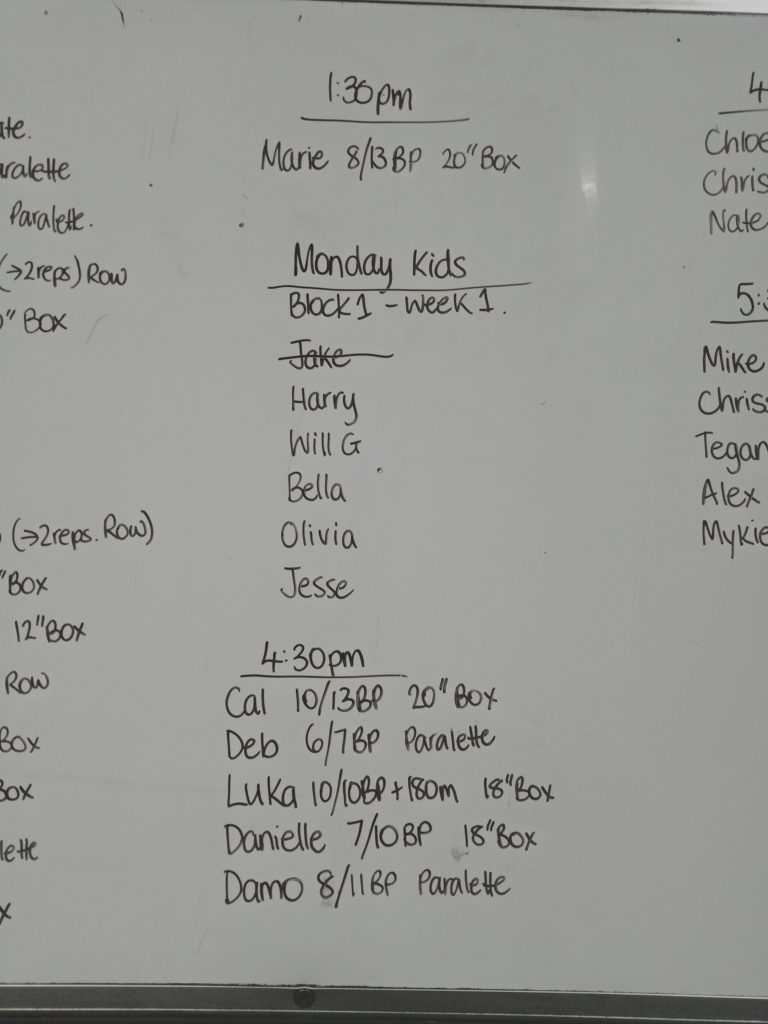 Paralette.
(→2reps) Row
" Box
(→2reps. Row)
"Box
12"Box
Row
Box
Box
x
1:30pm
Marie 8/13BP 20"Box
Monday Kids
Block 1 - Week 1.
Jake
Harry
Will G
Bella
Olivia
Jesse
4:30pm
Cal 10/13BP 20"Box
Deb 6/7BP Paralette
Luka 10/10BP+180m 18"Box
Danielle 7/10BP 18"Box
Damo 8/11BP Paralette
4
Chloe
Chris
Nate
5:
Mike
Chris
Tegan
Alex
Mykie